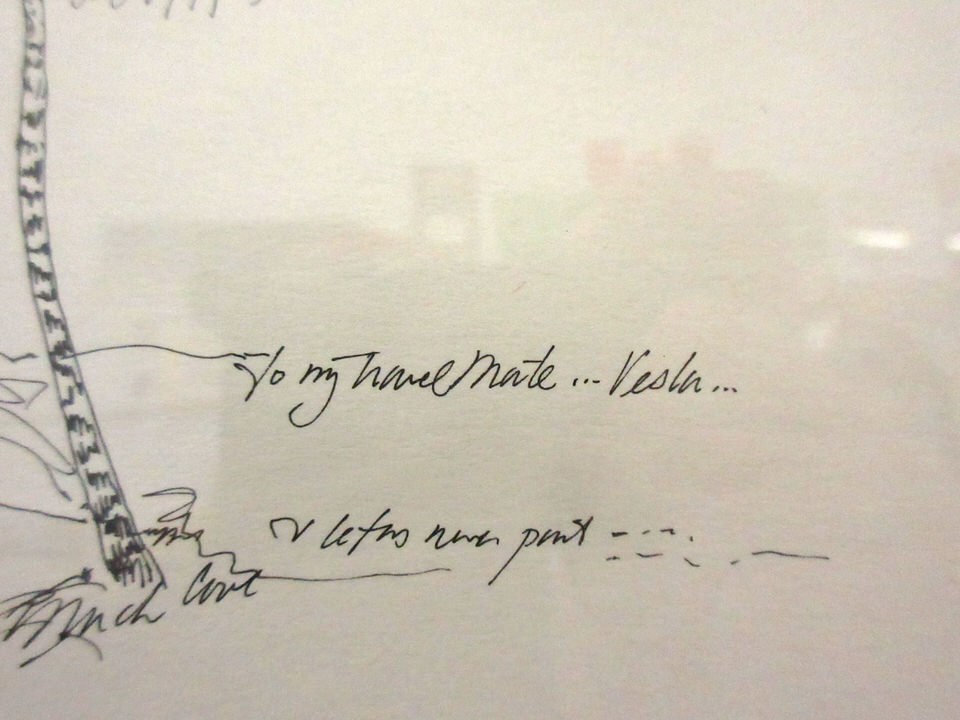 To my Travel Mate ... Vesla ...
let us never part
Much Love